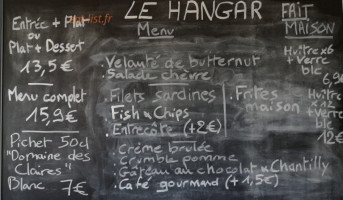 LE HANGAR
Entrée + Plat
ou
Plat + Dessert
13,5€
Menu complet
15,9€
Pichet 50cl
"Domaine des
Claires"
Blanc 7€
Menu
. Velouté de butternut
. Salade chèvre
. Filets sardines
. Fish n Chips
. Entrecôte (+2€)
. Frites
maison
. Crème brulée
. Crumble pomme
. Gâteau au chocolat n Chantilly
. Café gourmand (+1,5€)
FAIT
MAISON
Huître x6
+ Verre
blc
6,9€
Huître
x12
+ Verre
blc
12€